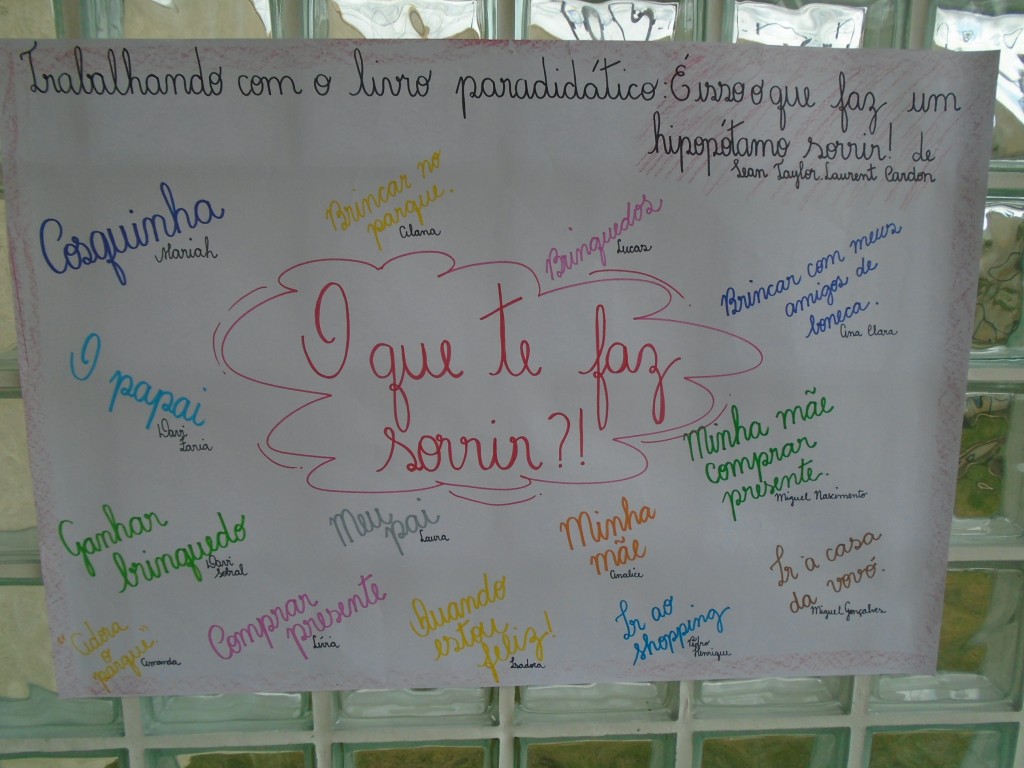 Trabalhando com o livro paradidático: É isso o que faz um
hipopótamo sorrir! de
Sean Taylor. Laurent Cardon
Cosquinha
Mariah
Brincar no
parque.
Brinquedos
Lucas
Brincar com meus
amigos de
boneca.
Ana Clara
O papai
Davi
Faria
O que te faz
sorrir?!
Minha mãe
comprar
presente.
Miguel Nascimento
Ganhar
brinquedo
Davi
Sobral
Meu
pai
Laura
Minha
mãe
Analice
Ir a casa
da vovó.
Miguel Gonçalves
"Adora
o
parque"
Amanda
Comprar
presente
Lívia
Quando
estou
feliz!
Isadora
Ir ao
shopping
Pedro
Henrique